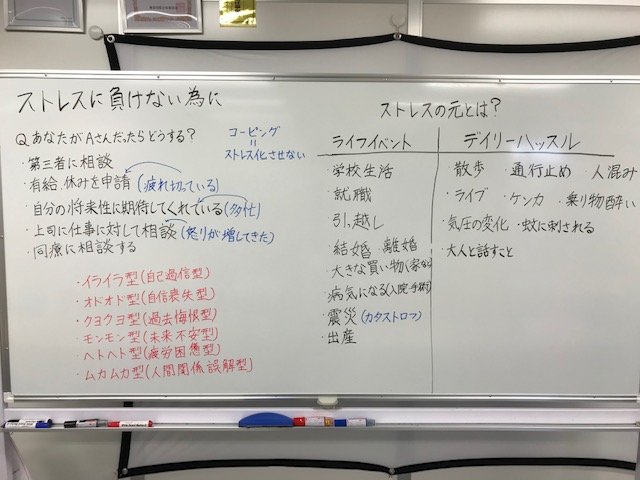 ストレスに負けない為に
Q あなたがAさんだったらどうする?
コーピング
=
ストレス化させない
・第三者に相談
・有給、休みを申請(疲れ切っている)
・自分の将来性に期待してくれている(多忙)
・上司に仕事に対して相談(怒りが増してきた)
・同療に相談する
・イライラ型(自己過信型)
・オドオド型(自信喪失型)
・クヨクヨ型(過去悔恨型)
・モンモン型(未来不安型)
・ヘトヘト型(疲労困憊型)
・ムカムカ型(人間関係誤解型)
ストレスの元とは?
ライフイベント
・学校生活
・就職
・引っ越し
・結婚・離婚
・大きな買い物(家など)
・病気になる(入院・手術)
・震災(カタストロフ)
・出産
デイリーハッスル
・散歩・通行止め・人混み
・ライブ・ケンカ・乗り物酔い
・気圧の変化・蚊に刺される
・大人と話すこと